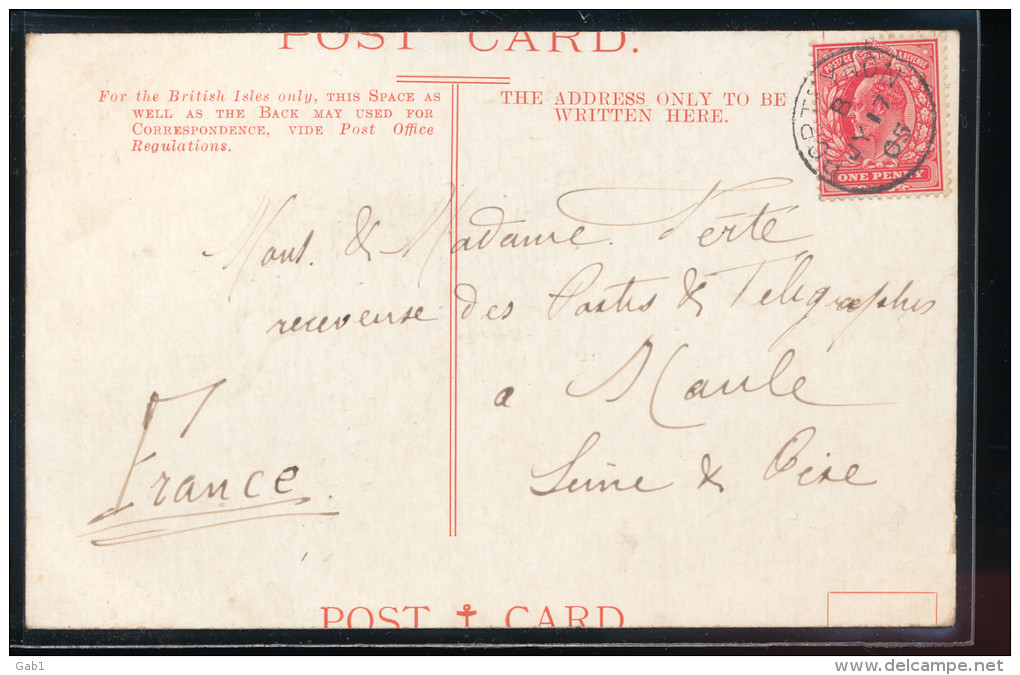 POST CARD.
For the British Isles only, THIS SPACE AS
WELL AS THE BACK MAY USED FOR
CORRESPONDENCE, VIDE Post Office
Regulations.
THE ADDRESS ONLY TO BE
WRITTEN HERE.
POSTAGE & REVENUE
B
JY 17
05
ONE PENNY
Mons. & Madame
receveuse des Postes & Telegraphes
a Maule
Seine & Oise
France.
POST CARD
Gab1
www.delcampe.net